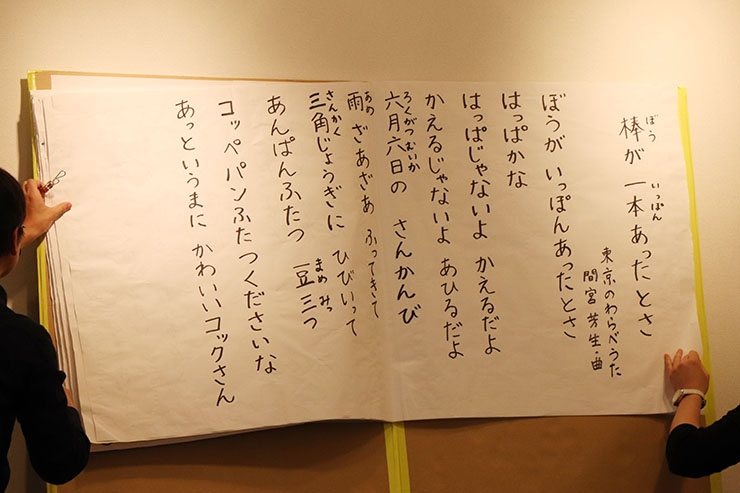 ぼう いっぽん
棒が 一本あったとさ
東京のわらべうた
間宮 芳生・曲
ぼうが いっぽんあったとさ
はっぱかな
はっぱじゃないよ かえるだよ
かえるじゃないよ あひるだよ
ろくがつむいか
六月六日の さんかんび
あめ
雨 ざあざあ ふってきて
さんかく
三角じょうぎに ひびいって
まめ みっ
あんぱんふたつ 豆三つ
コッペパンふたつくださいな
あっというまに かわいいコックさん